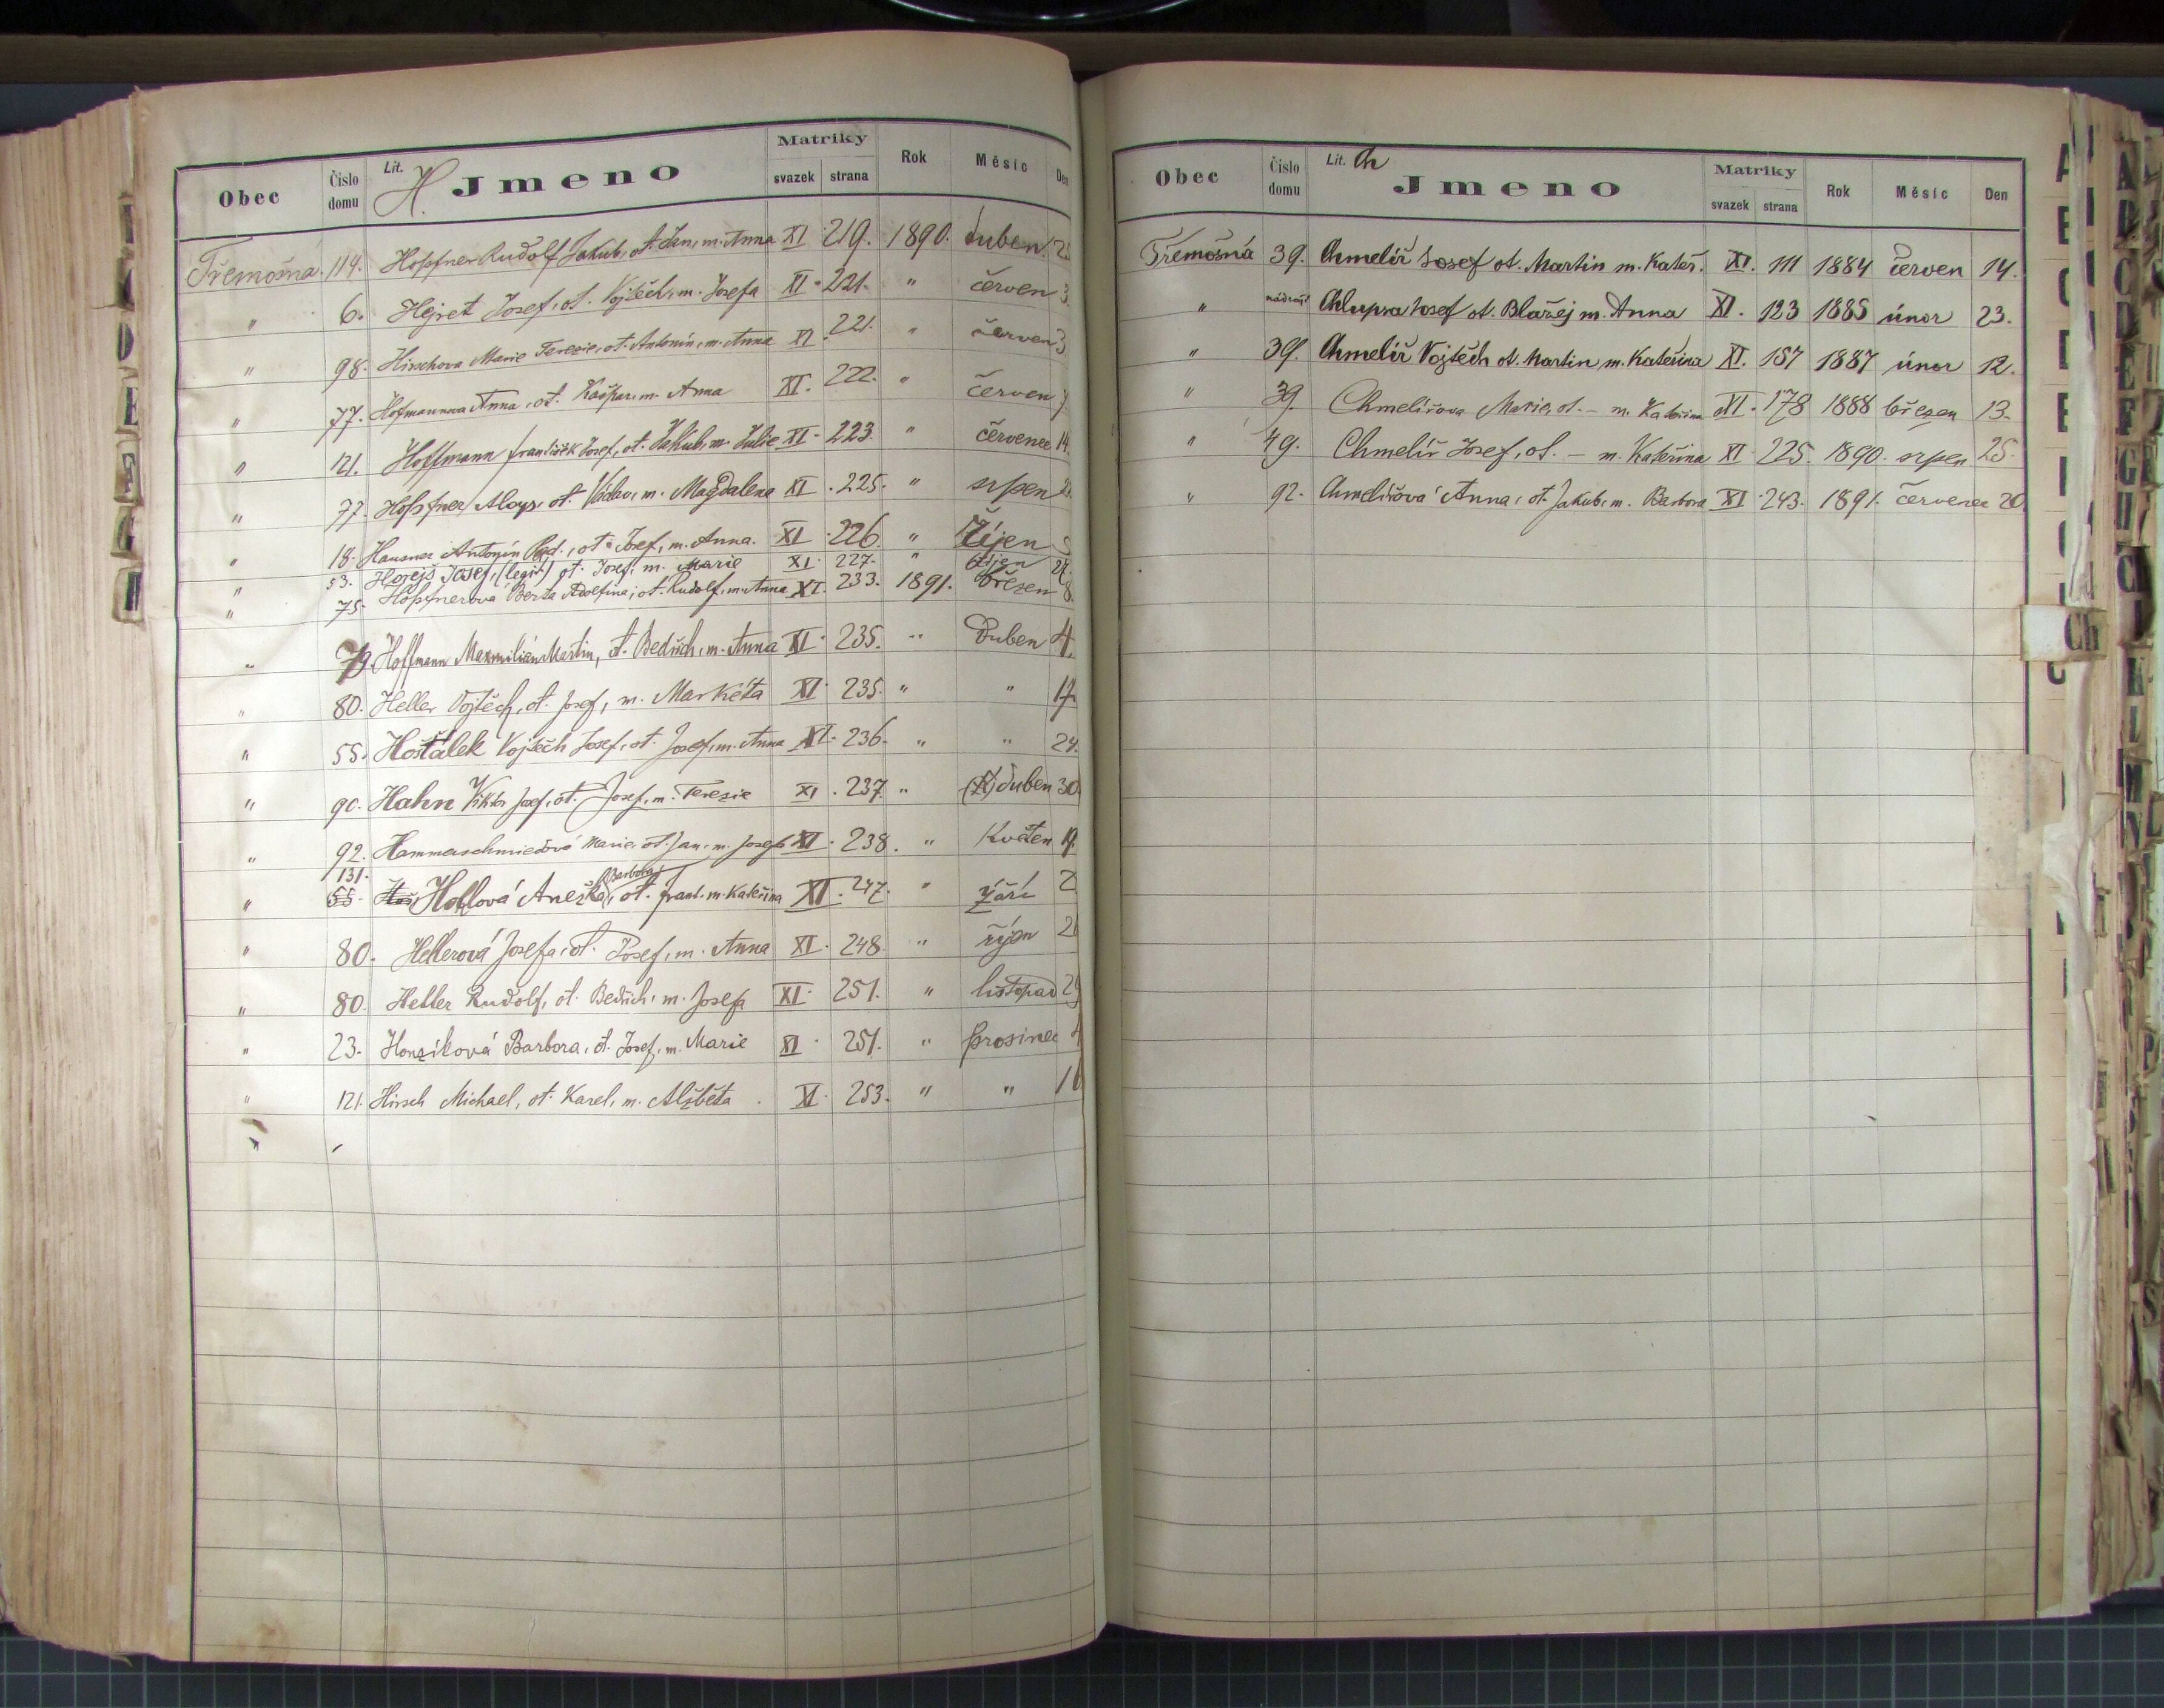 Obec Číslo domu Lit. H. Jmeno Matriky svazek strana Rok Měsíc Den
Třemošná 114. Hopfner Rudolf Jakub, ot. Jan, m. Anna XI 219. 1890. duben
" 6. Hejret Josef, ot. Vojtěch, m. Josefa XI 221. " červen 3.
" 98. Hirschova Marie Terezie, ot. Antonín, m. Anna XI 221. " červen 3
" 77. Hofmannova Anna, ot. Kašpar, m. Anna XI. 222. " červen
" 121. Hoffmann František Josef, ot. Jakub, m. Julie XI 223. " červenec 14.
" 77. Hopfner Aloys, ot. Václav, m. Magdalena XI. 225. " srpen
" 18. Hausner Antonín, ot. Josef, m. Anna. XI 226. " Říjen
" 53. Horejš Josef, (legit) ot. Josef, m. Marie XI 227. " říjen
" 75. Hopfnerova Berta Adolfina, ot. Rudolf, m. Anna XI. 233. 1891. březen 8.
" 79. Hoffmann Maxmilián Martin, ot. Bedřich, m. Anna XI 235. " Duben 4.
" 80. Heller Vojtěch, ot. Josef, m. Markéta XI 235. " " 17.
" 55. Hoštálek Vojtěch Josef, ot. Josef, m. Anna XI. 236. " " 24.
" 90. Hahn Viktor Josef, ot. Josef, m. Terezie XI. 237. " duben 30
" 92. Hammerschmiedová Marie, ot. Jan, m. Josefa XI. 238. " Květen 19.
131.
" 55. Hollová Anežka (Barbora), ot. Frant. m. Kateřina XI. 247. " září 2
" 80. Hellerová Josefa, ot. Josef, m. Anna XI. 248. " říjen
" 80. Heller Rudolf, ot. Bedřich, m. Josefa XI 251. " listopad
" 23. Honzíková Barbora, ot. Josef, m. Marie XI 251. " prosinec
" 121. Hirsch Michael, ot. Karel, m. Alžběta XI. 253. " "
Obec Číslo domu Lit. Ch Jmeno Matriky svazek strana Rok Měsíc Den
Třemošná 39. Chmelíř Josef ot. Martin m. Kateř. XI. 111 1884 červen 14.
" nádraží Chlupsa Josef ot. Blažej m. Anna XI. 123 1885 únor 23.
" 39. Chmelíř Vojtěch ot. Martin m. Kateřina XI. 157 1887 únor 12.
" 39. Chmelířova Marie, ot. – m. Kateřina XI. 178 1888 březen 13.
" 49. Chmelíř Josef, ot. – m. Kateřina XI 225. 1890. srpen 25.
" 92. Chmelířova Anna, ot. Jakub, m. Barbora XI 243. 1891. červenec 20.
Ch